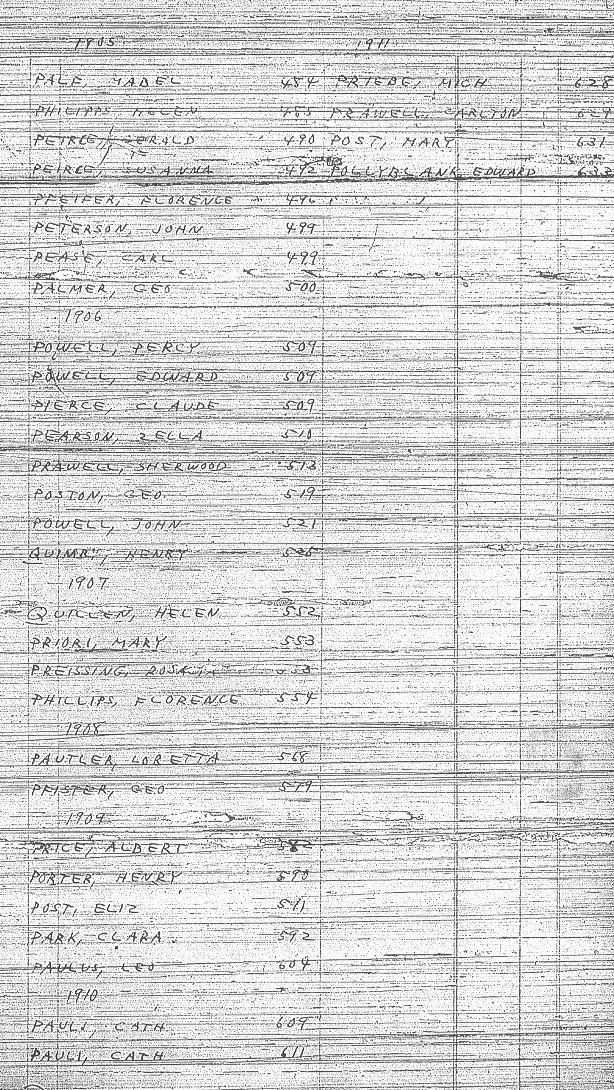 1905
PALE, MABEL 484
PHILIPPS, HELEN 485
PEIRCE, GERALD 490
PEIRCE, SUSANNA 492
PFEIFER, FLORENCE 496
PETERSON, JOHN 499
PEASE, CARL 499
PALMER, GEO 500
1906
POWELL, PERCY 509
POWELL, EDWARD 509
PIERCE, CLAUDE 509
PEARSON, ZELLA 510
PRAWELL, SHERWOOD 513
POSTON, GEO. 519
POWELL, JOHN 521
QUIMBY, HENRY
1907
QUILLEN, HELEN 552
PRIORI, MARY 553
PREISSING, 553
PHILLIPS, FLORENCE 554
1908
PAUTLER, LORETTA 568
PFISTER, GEO 579
1909
PRICE, ALBERT
PORTER, HENRY 590
POST, ELIZ 591
PARK, CLARA. 592
PAULUS, LEO 604
1910
PAULI, CATH 609
PAULI, CATH 611
1911
PRIEBE, MICH 628
PRAWELL, CARLTON 629
POST, MARY 631
POLLYBLANK, EDWARD 633